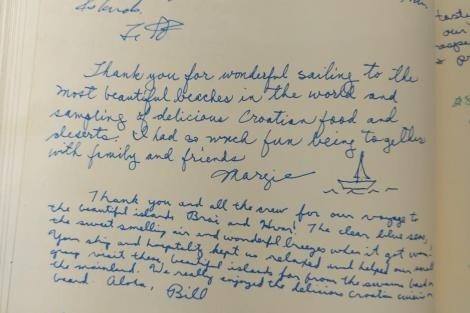 Thank you for wonderful sailing to the
most beautiful beaches in the world and
sampling of delicious Croatian food and
deserts. I had so much fun being together
with family and friends
Margie
Thank you and all the crew for our voyage to
the beautiful islands Brač and Hvar! The clear blue sea,
the sweet smelling air and wonderful breezes when it got warm.
Your ship and hospitality kept us relaxed and helped our small
group visit these beautiful islands far from the swarms back on
the mainland. We really enjoyed the delicious Croatian cuisine on
board. Aloha, Bill
our